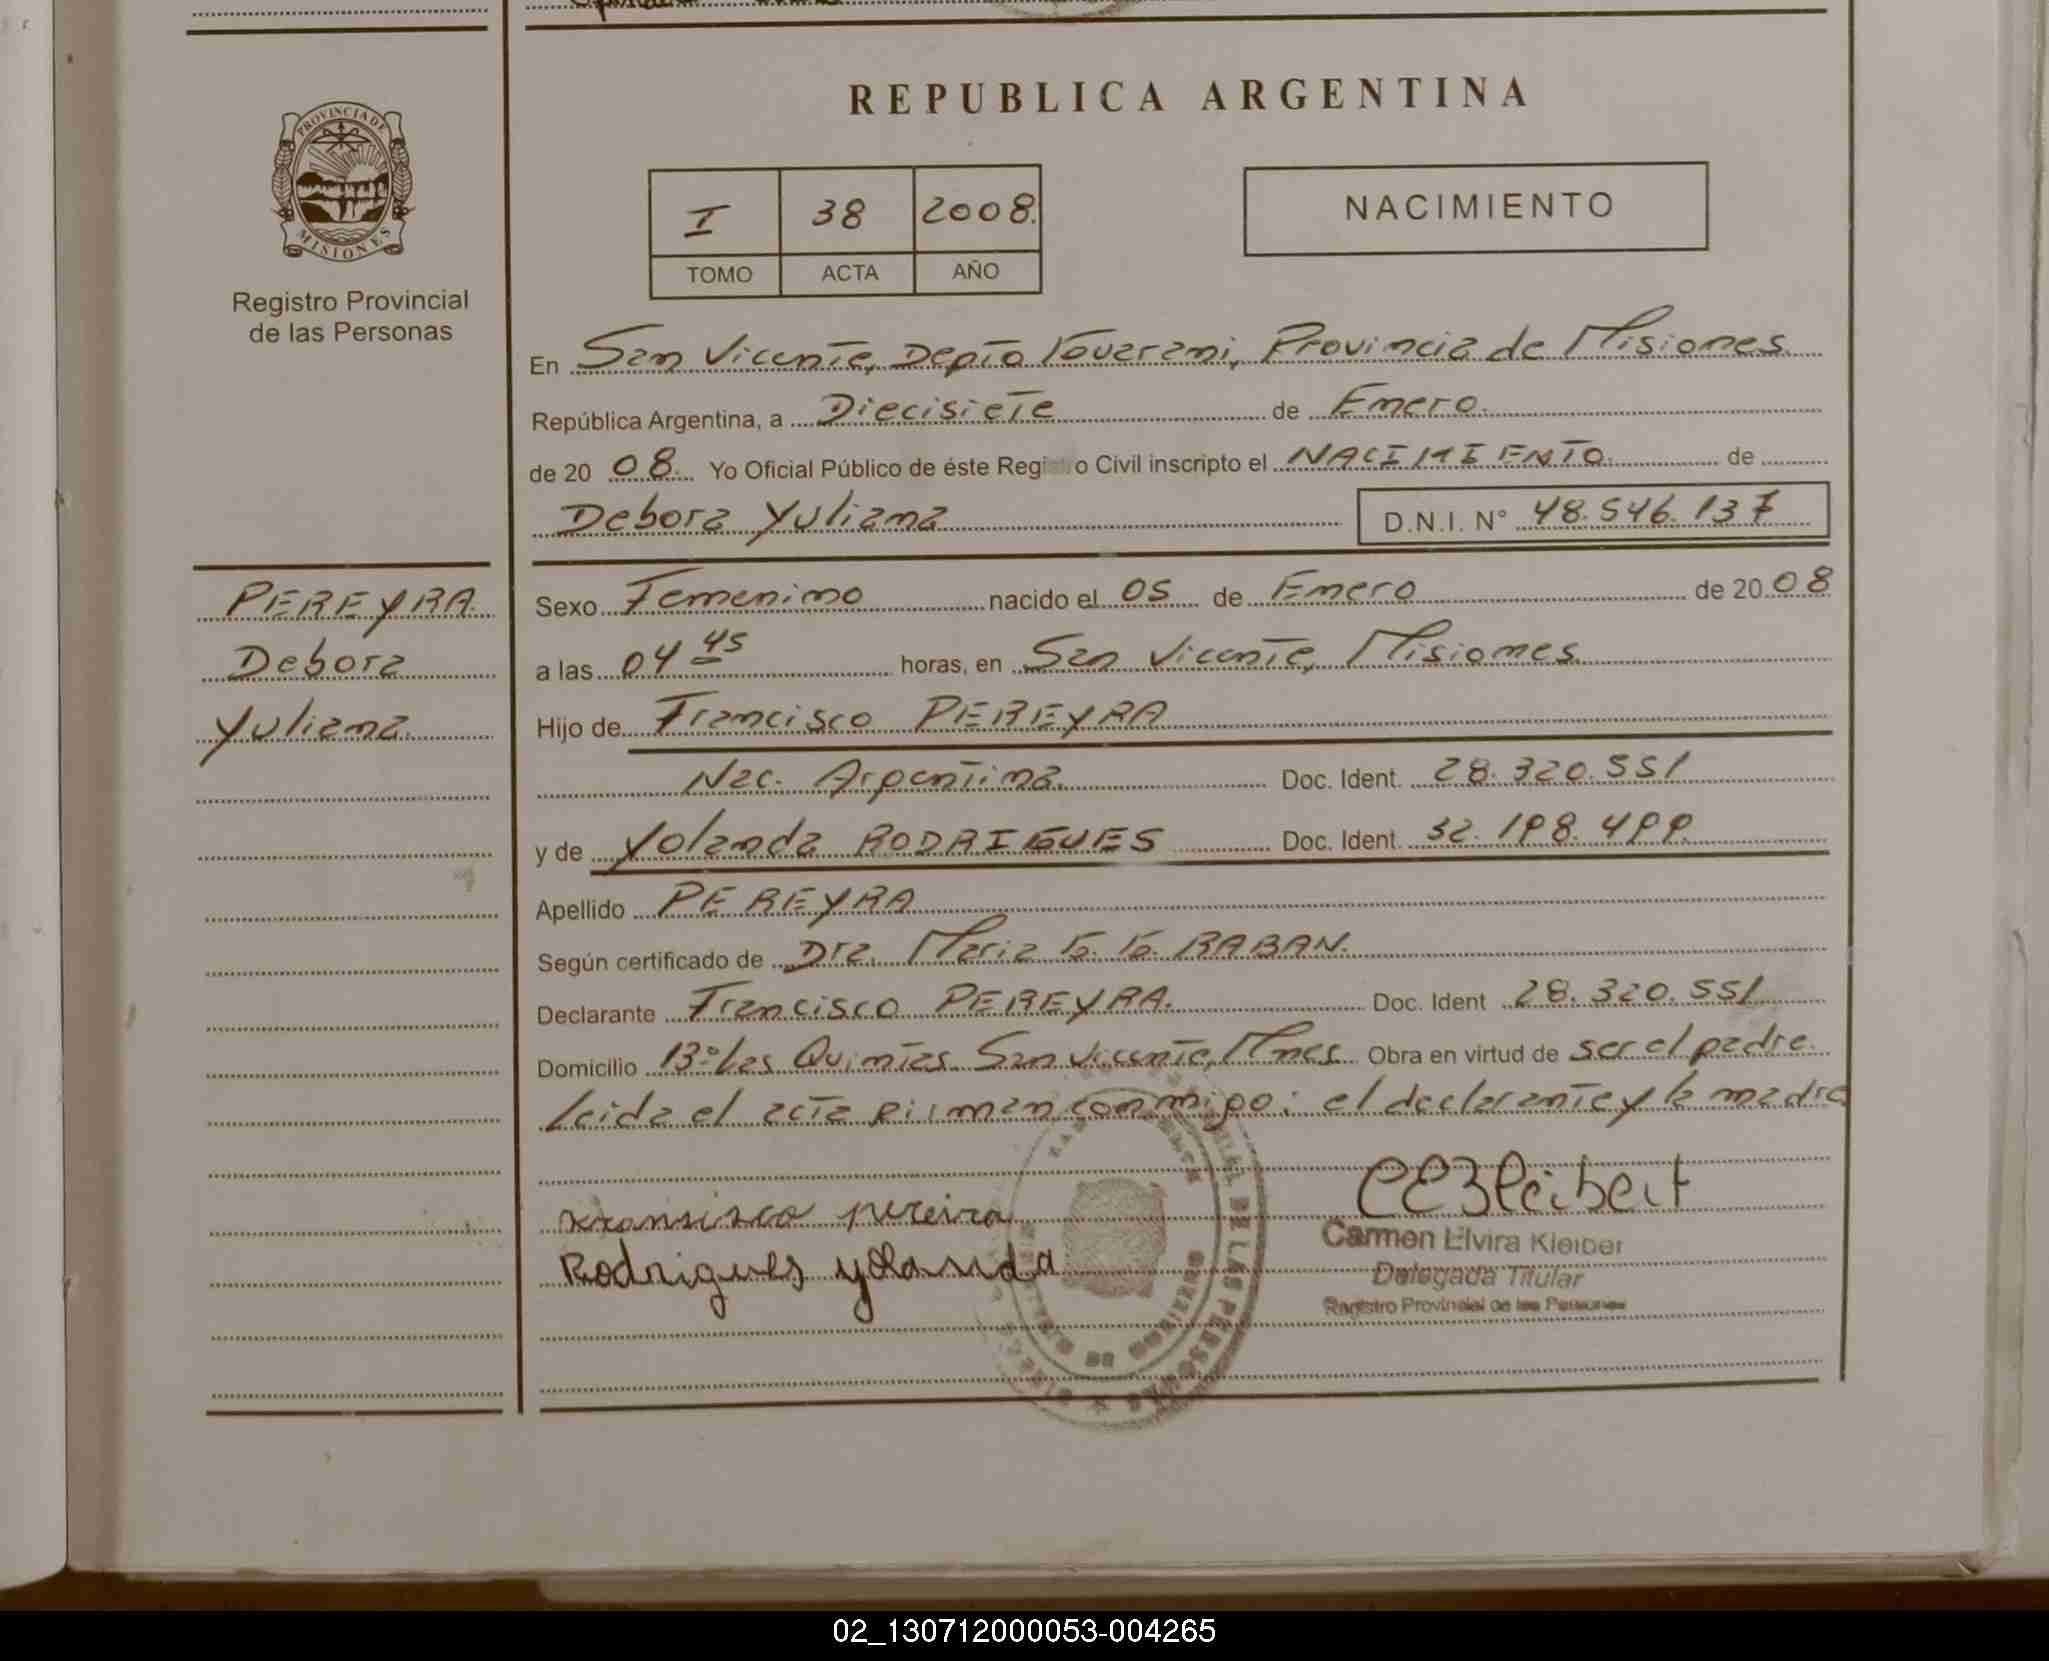 REPUBLICA ARGENTINA
PROVINCIA DE
MISIONES
Registro Provincial
de las Personas
I 38 2008.
TOMO ACTA AÑO
NACIMIENTO
En San Vicente, Depto Guarani, Provincia de Misiones
República Argentina, a Diecisiete de Enero.
de 20 08. Yo Oficial Público de éste Registro Civil inscripto el NACIMIENTO. de
Debora Yuliana D.N.I. N° 48.546.137
PEREYRA
Debora
Yuliana
Sexo Femenino nacido el 05 de Enero de 20 08
a las 04 45 horas, en San Vicente, Misiones
Hijo de Francisco PEREYRA
Nac. Argentina. Doc. Ident. 28.320.551
y de Yolanda RODRIGUES Doc. Ident. 32.198.499
Apellido PEREYRA
Según certificado de Dra. Maria G. G. RABAN.
Declarante Francisco PEREYRA. Doc. Ident 28.320.551
Domicilio B° Las Quintas San Vicente, Mnes Obra en virtud de ser el padre.
Leida el acta firman conmigo: el declarante y la madre
pereira
Rodrigues yolanda
Carmen Elvira Kleiber
Delegada Titular
Registro Provincial de las Personas
DE LAS PERSONAS
02_130712000053-004265